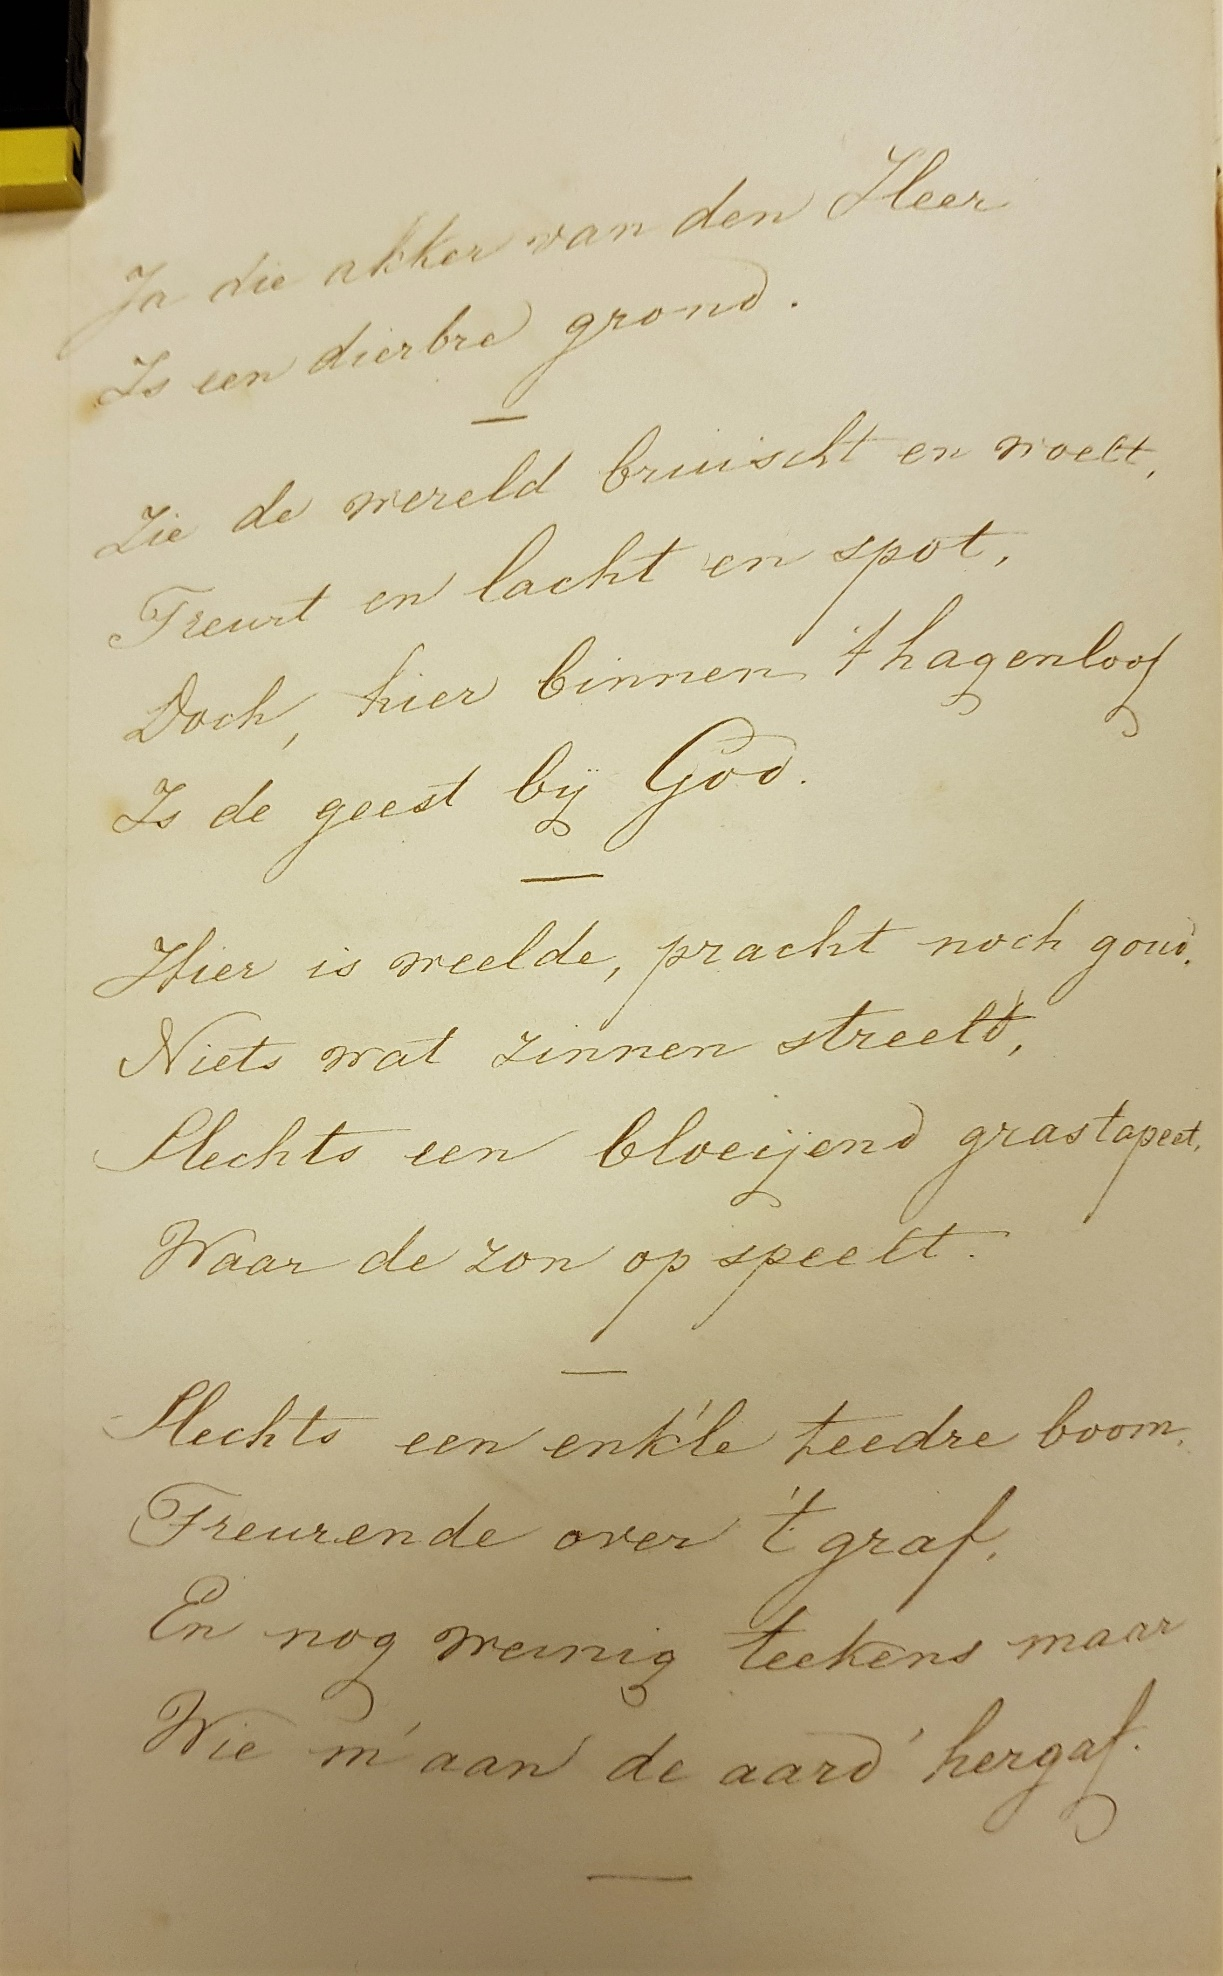 Ja die akker van den Heer
Is een dierbre grond.
—
Zie de wereld bruischt en woelt,
Treurt en lacht en spot,
Doch, hier binnen 't hagenloof
Is de geest bij God.
—
Hier is weelde, pracht noch goud,
Niets wat zinnen streelt,
Slechts een bloeijend grastapeet,
Waar de zon op speelt.
—
Slechts een enk'le teedre boom,
Treurende over 't graf,
En nog weinig teekens maar
Wie m' aan de aard' hergaf.
—